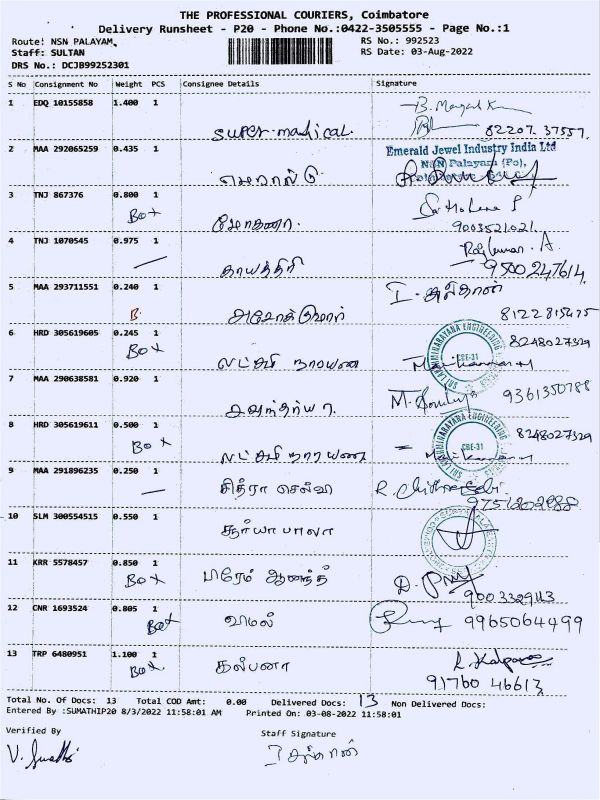 THE PROFESSIONAL COURIERS, Coimbatore
Delivery Runsheet - P20 - Phone No.:0422-3505555 - Page No.:1
Route: NSN PALAYAM, RS No.: 992523
Staff: SULTAN RS Date: 03-Aug-2022
DRS No.: DCJB99252301
S No Consignment No Weight PCS Consignee Details Signature
1 EDQ 10155858 1.400 1
super madical. 82207 37557
2 MAA 292065259 0.435 1 Emerald Jewel Industry India Ltd
NSN Palayam (Po),
3 TNJ 867376 0.800 1
Box மோகனா. 9003521021
4 TNJ 1070545 0.975 1 Rajkumar. A
காயத்திரி 9500247614
5 MAA 293711551 0.240 1 I. சுல்தான்
B. அசோக்குமார் 8122815475
6 HRD 305619605 0.245 1 8248027329
Box லட்சுமி நாராயண SRI LAKSHMINARAYANA ENGINEERING CBE-31
7 MAA 290638581 0.920 1 9361350788
8 HRD 305619611 0.500 1 8248027329
Box லட்சுமி நாராயண SRI LAKSHMINARAYANA ENGINEERING CBE-31
9 MAA 291896235 0.250 1
சித்ரா செல்வி R. Chithraselvi 9751202988
10 SLM 300554515 0.550 1
சூர்யா பாலா
11 KRR 5578457 0.850 1
Box பிரேம் ஆனந்த் 9003329113
12 CNR 1693524 0.805 1
Box விமல் 9965064499
13 TRP 6480951 1.100 1
Box கல்பனா R. Kalpana
91760 46613
Total No. Of Docs: 13 Total COD Amt: 0.00 Delivered Docs: 13 Non Delivered Docs:
Entered By :SUMATHIP20 8/3/2022 11:58:01 AM Printed On: 03-08-2022 11:58:01
Verified By Staff Signature
V. Sumathi I சுல்தான்